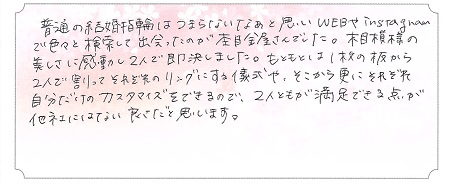 普通の結婚指輪はつまらないなぁと思いWEBやinstagram
で色々と検索して出会ったのが杢目金屋さんでした。木目模様の
美しさに感動し2人で即決しました。もともとは1枚の板から
2人で割ってそれぞれのリングにする儀式や、そこから更にそれぞれ
自分だけのカスタマイズをできるので、2人ともが満足できる点が
他社にはない良さだと思います。